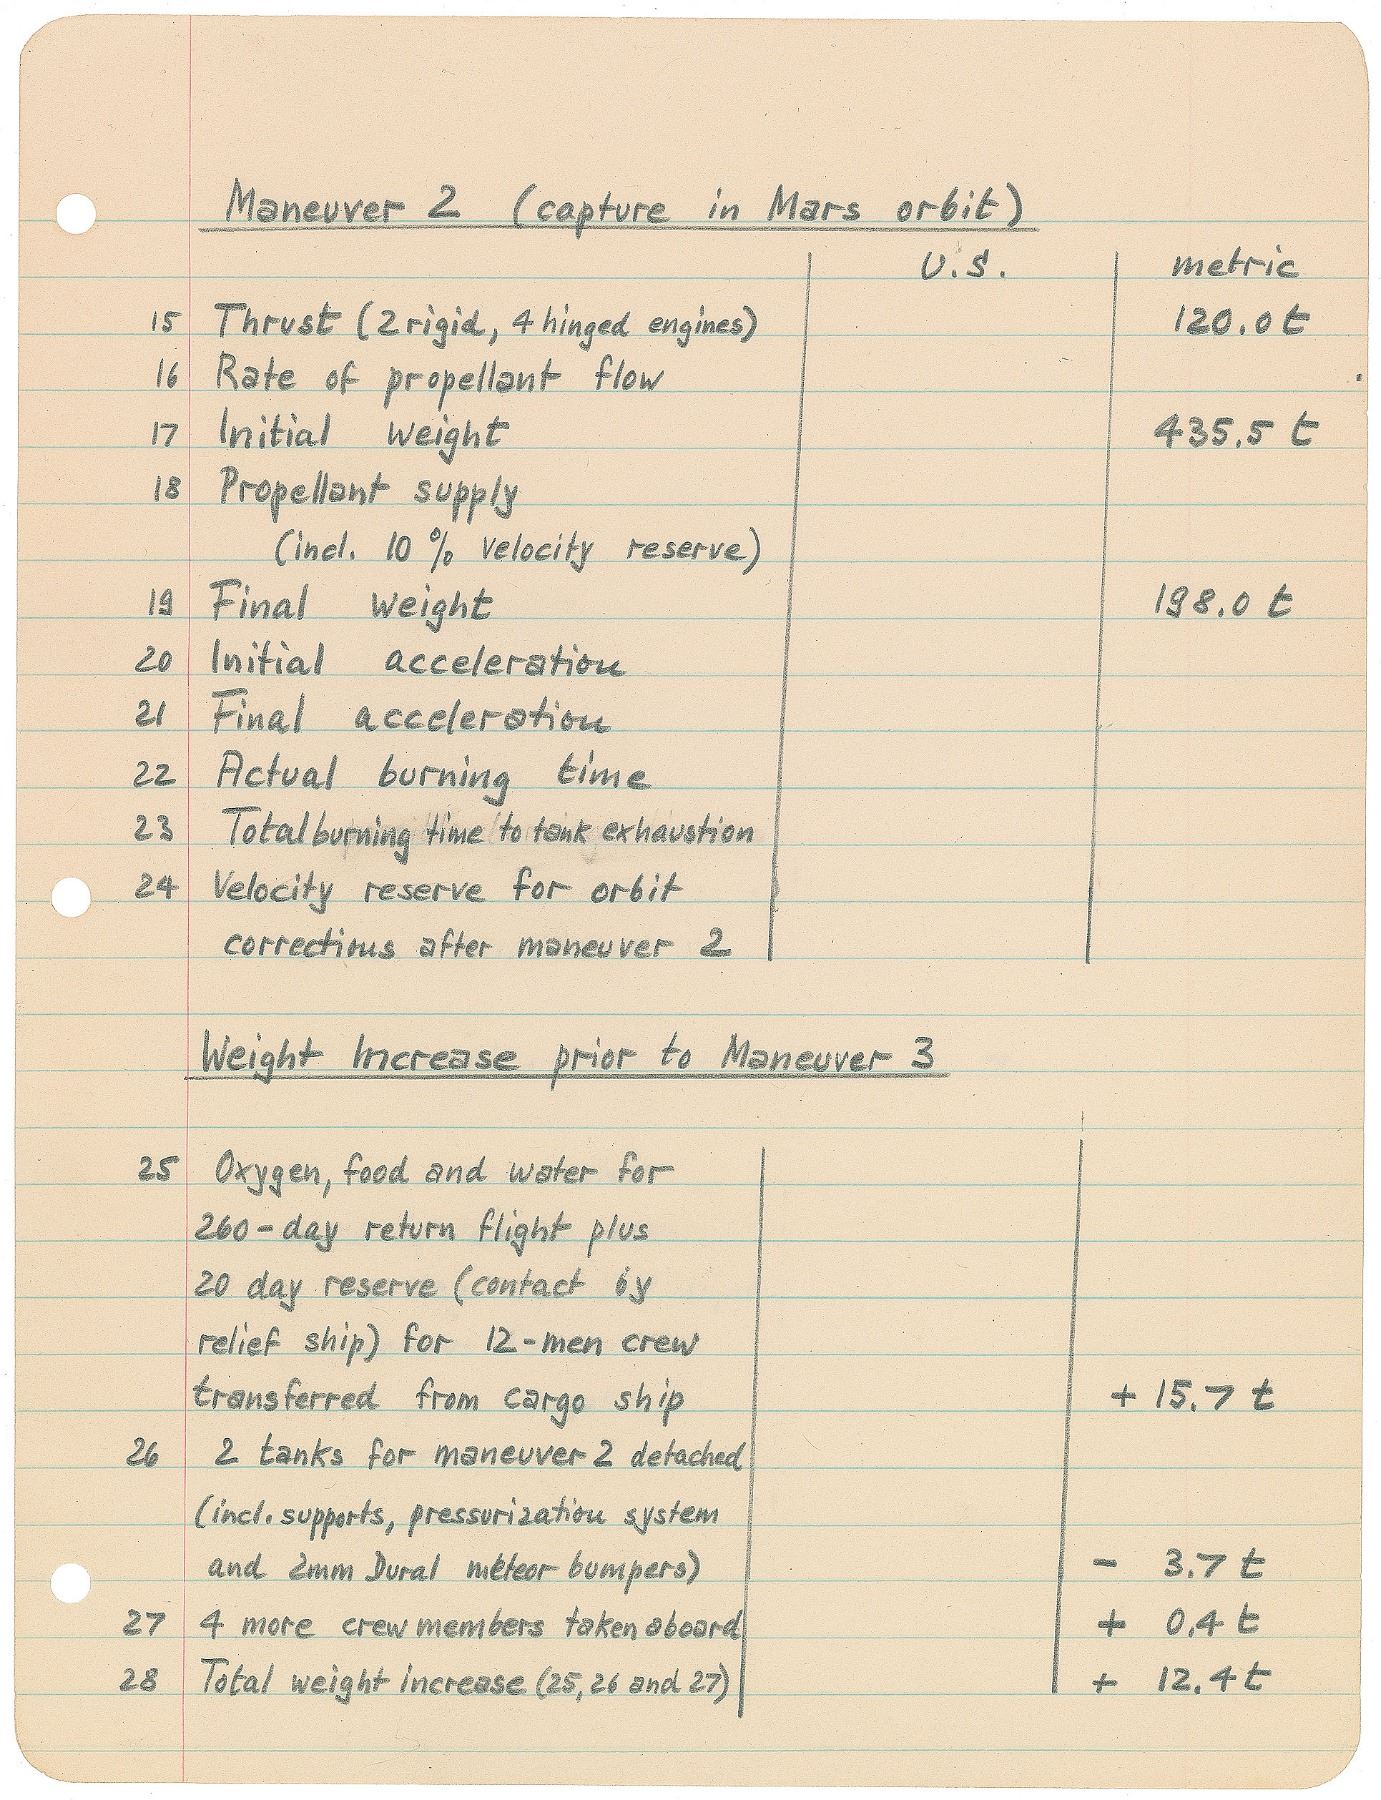 Maneuver 2 (capture in Mars orbit)
U.S. metric
15 Thrust (2 rigid, 4 hinged engines) 120.0 t
16 Rate of propellant flow
17 Initial weight 435.5 t
18 Propellant supply
(incl. 10 % velocity reserve)
19 Final weight 198.0 t
20 Initial acceleration
21 Final acceleration
22 Actual burning time
23 Total burning time to tank exhaustion
24 Velocity reserve for orbit
corrections after maneuver 2
Weight Increase prior to Maneuver 3
25 Oxygen, food and water for
260-day return flight plus
20 day reserve (contact by
relief ship) for 12-men crew
transferred from cargo ship + 15.7 t
26 2 tanks for maneuver 2 detached
(incl. supports, pressurization system
and 2mm Dural meteor bumpers) - 3.7 t
27 4 more crew members taken aboard + 0.4 t
28 Total weight increase (25, 26 and 27) + 12.4 t